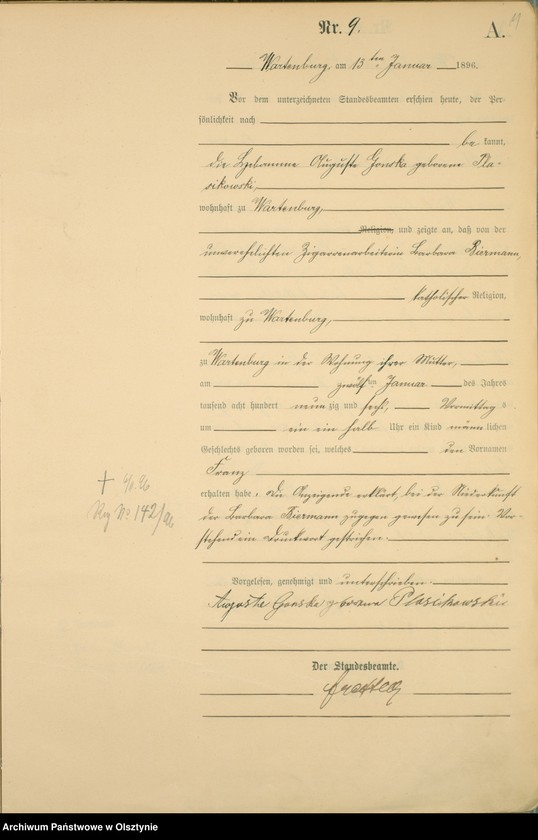 Nr. 9.
A.
Wartenburg, am 13ten Januar 1896.
Vor dem unterzeichneten Standesbeamten erschien heute, der Per-
sönlichkeit nach
be kannt,
die Hebamme Auguste Gonska geborene Pla-
sikowski,
wohnhaft zu Wartenburg,
Religion, und zeigte an, daß von der
unverehelichten Zigarrenarbeiterin Barbara Biermann,
katholischer Religion,
wohnhaft zu Wartenburg,
zu Wartenburg in der Wohnung ihrer Mutter,
am zwölften Januar des Jahres
tausend acht hundert neun zig und sechs, Vormittag s
um ein ein halb Uhr ein Kind männ lichen
Geschlechts geboren worden sei, welches den Vornamen
Franz
erhalten habe. Die Anzeigende erklärt, bei der Niederkunft
der Barbara Biermann zugegen gewesen zu sein. Vor-
stehend ein Druckwort gestrichen.
Vorgelesen, genehmigt und unterschrieben.
Auguste Gonska geborene Plasikowski
Der Standesbeamte.
†
No 142/96
Archiwum Państwowe w Olsztynie